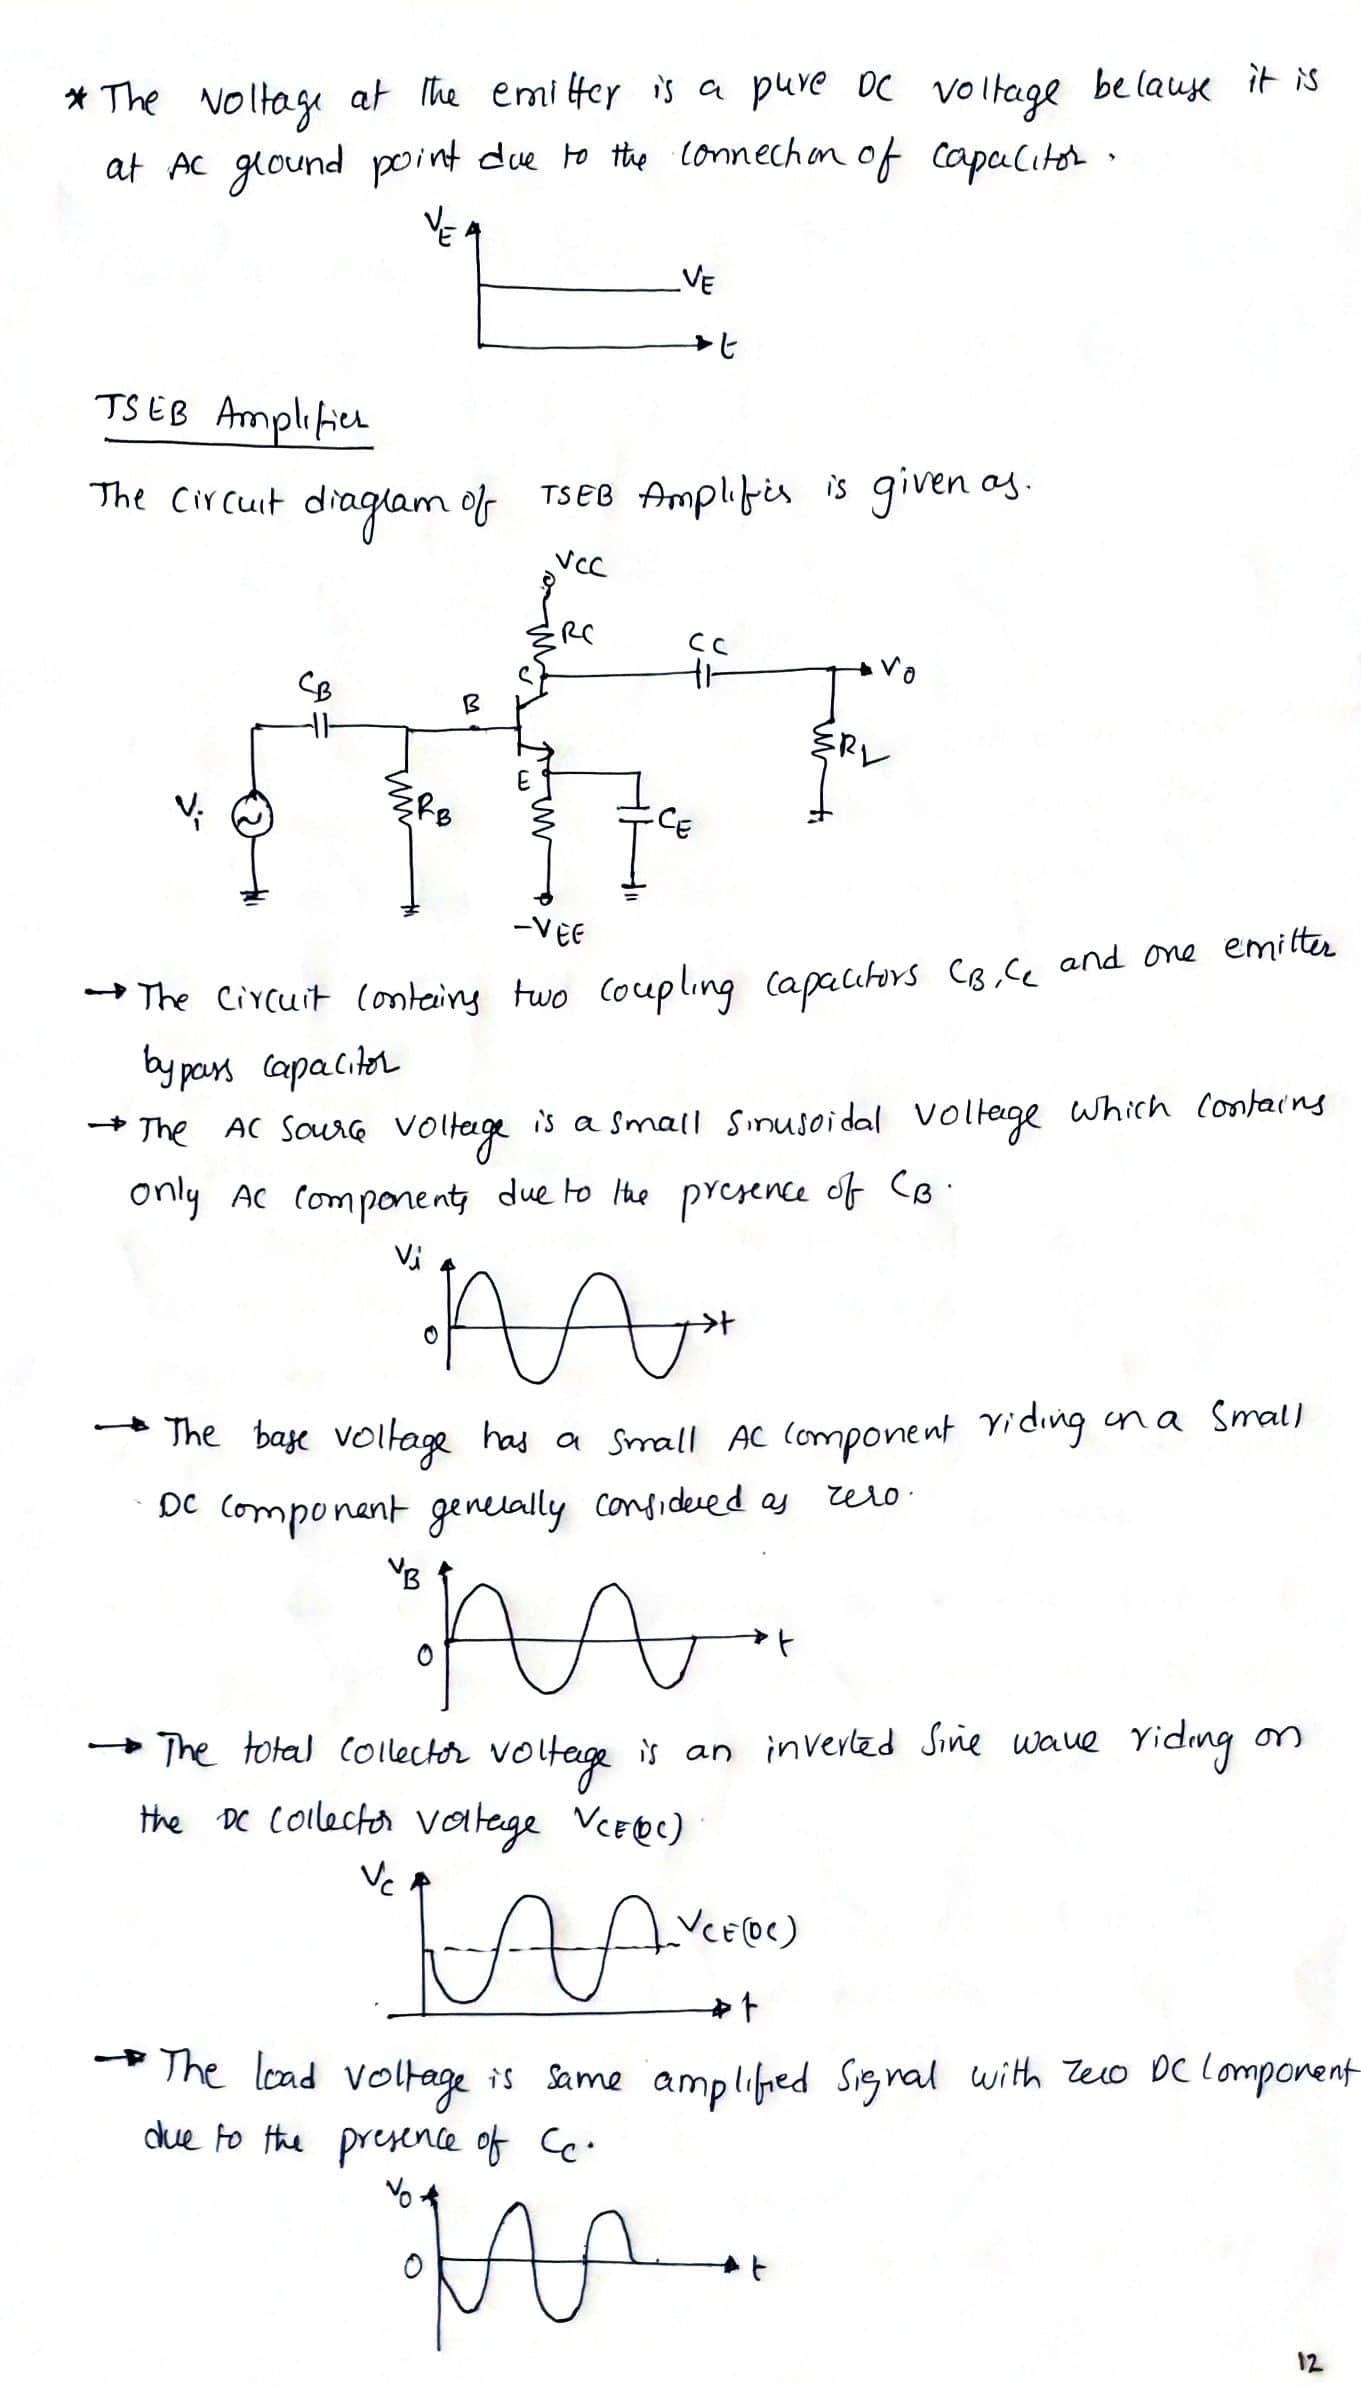 * The Voltage at the emitter is a pure DC voltage because it is
at AC ground point due to the connection of capacitor.
VE
VE
t
TSEB Amplifier
The Circuit diagram of TSEB Amplifier is given as.
VCC
RC
CC
Vo
CB
C
B
RL
E
Vi
RB
CE
-VEE
→ The Circuit Contains two Coupling Capacitors CB, Cc and one emitter
bypass Capacitor
→ The AC Source Voltage is a Small Sinusoidal Voltage which Contains
only AC Components due to the presence of CB.
Vi
0
t
→ The base voltage has a Small AC Component riding on a Small
DC Component generally Considered as zero.
VB
0
t
→ The total Collector Voltage is an inverted Sine wave riding on
the DC Collector Voltage VCE(DC)
Vc
VCE(DC)
t
→ The load Voltage is Same amplified Signal with Zero DC Component
due to the presence of Cc.
Vo
0
t
12